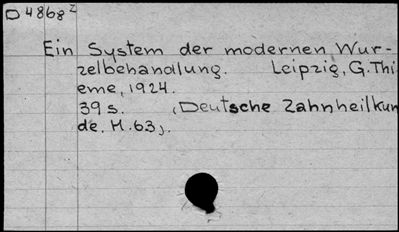 D 4868 z
Ein System der modernen Wur-
zelbehandlung. Leipzig, G. Thi
eme, 1924.
39 s. (Deutsche Zahnheilkun
de. H. 63).